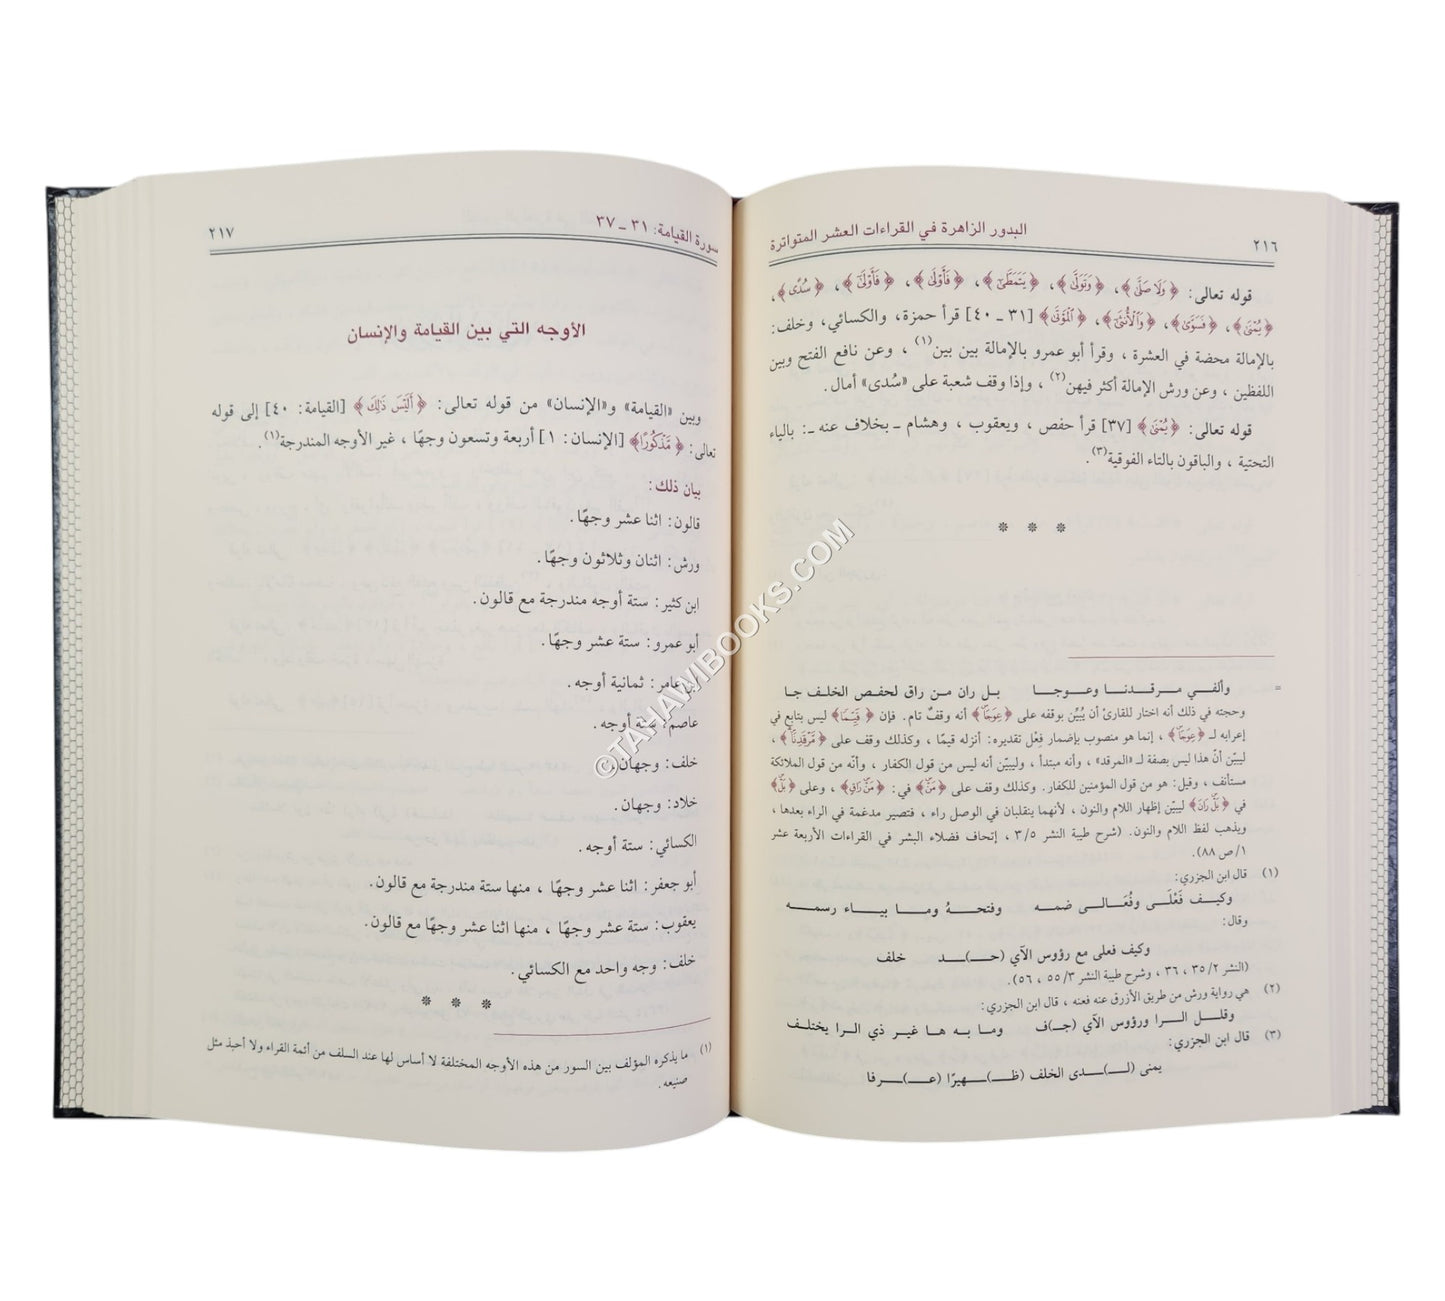 ٢١٦
البدور الزاهرة في القراءات العشر المتواترة
قوله تعالى: ﴿وَلَا صَلَّىٰ﴾، ﴿وَتَوَلَّىٰ﴾، ﴿يَتَمَطَّىٰٓ﴾، ﴿فَأَوْلَىٰ﴾، ﴿فَأَوْلَىٰٓ﴾، ﴿سُدًى﴾،
﴿يُمْنَىٰ﴾، ﴿فَسَوَّىٰ﴾، ﴿وَٱلْأُنثَىٰٓ﴾، ﴿ٱلْمَوْتَىٰ﴾ [٣١ ـ ٤٠] قرأ حمزة، والكسائي، وخلف:
بالإمالة محضة في العشرة ، وقرأ أبو عمرو بالإمالة بين بين(١) ، وعن نافع الفتح وبين
اللفظين ، وعن ورش الإمالة أكثر فيهن(٢) ، وإذا وقف شعبة على «سُدى» أمال.
قوله تعالى: ﴿يُمْنَىٰ﴾ [٣٧] قرأ حفص ، ويعقوب ، وهشام ـ بخلاف عنه ـ: بالياء
التحتية ، والباقون بالتاء الفوقية(٣).
* * *
= وألفـي مـرقـدنـا وعـوجـا بـل ران مـن راق لحفـص الخلـف جـا
وحجته في ذلك أنه اختار للقارئ أن يُبيِّن بوقفه على ﴿عِوَجَا﴾ أنه وقفٌ تام. فإن ﴿قَيِّمًا﴾ ليس بتابع في
إعرابه لـ ﴿عِوَجَا﴾ ، إنما هو منصوب بإضمار فِعْل تقديره: أنزله قيمًا ، وكذلك وقف على ﴿مَّرْقَدِنَا﴾ ،
ليبيِّن أنْ هذا ليس بصفة لـ «المرقد» ، وأنه مبتدأ ، وليبيِّن أنه ليس من قول الكفار ، وأنّه من قول الملائكة
مستأنف ، وقيل: هو من قول المؤمنين للكفار. وكذلك وقف على ﴿مَنْ﴾ في: ﴿مَنْ رَاقٍ﴾ ، وعلى ﴿بَلْ﴾
في ﴿بَلْ رَانَ﴾ ليبيِّن إظهار اللام والنون ، لأنهما ينقلبان في الوصل راء ، فتصير مدغمة في الراء بعدها ،
ويذهب لفظ اللام والنون. (شرح طيبة النشر ٣/٥ ، إتحاف فضلاء البشر في القراءات الأربعة عشر
١/ص ٨٨).
(١) قال ابن الجزري:
وكيـف فَعْلَـى وفُعَـالـى ضمـه وفتحـهُ ومـا بيـاء رسمـه
وقال:
وكيف فعلى مع رؤوس الآي (حـ)ـد خلف
(النشر ٢/ ٣٥ ، ٣٦ ، وشرح طيبة النشر ٣/ ٥٥ ، ٥٦).
(٢) هي رواية ورش من طريق الأزرق عنه فعنه ، قال ابن الجزري:
وقلـل الـرا ورؤوس الآي (جـ)ـف ومـا بـه هـا غيـر ذي الـرا يختلـف
(٣) قال ابن الجزري:
يمنى (لـ)ـدى الخلف (ظـ)ـهيرًا (عـ)ـرفا
سورة القيامة: ٣١ ـ ٣٧
٢١٧
الأوجه التي بين القيامة والإنسان
وبين «القيامة» و«الإنسان» من قوله تعالى: ﴿أَلَيْسَ ذَٰلِكَ﴾ [القيامة: ٤٠] إلى قوله
تعالى: ﴿مَّذْكُورًا﴾ [الإنسان: ١] أربعة وتسعون وجهًا ، غير الأوجه المندرجة(١).
بيان ذلك:
قالون: اثنا عشر وجهًا.
ورش: اثنان وثلاثون وجهًا.
ابن كثير: ستة أوجه مندرجة مع قالون.
أبو عمرو: ستة عشر وجهًا.
ابن عامر: ثمانية أوجه.
عاصم: ستة أوجه.
خلف: وجهان.
خلاد: وجهان.
الكسائي: ستة أوجه.
أبو جعفر: اثنا عشر وجهًا ، منها ستة مندرجة مع قالون.
يعقوب: ستة عشر وجهًا ، منها اثنا عشر وجهًا مع قالون.
خلف: وجه واحد مع الكسائي.
* * *
(١) ما يذكره المؤلف بين السور من هذه الأوجه المختلفة لا أساس لها عند السلف من أئمة القراء ولا أحبذ مثل
صنيعه.
©TAHAWIBOOKS.COM